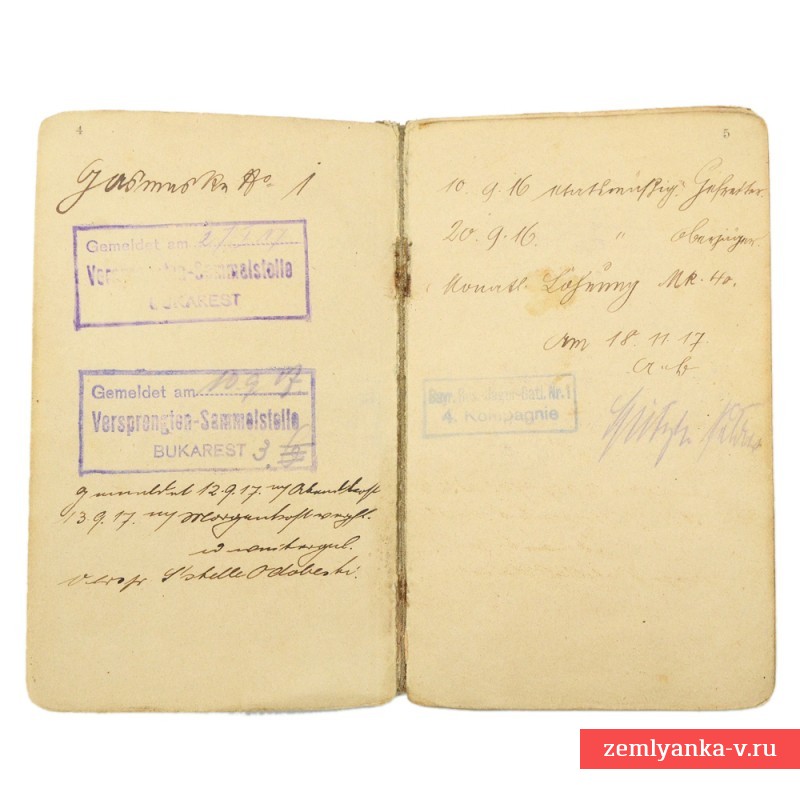 4
Gasmaske No. 1
Gemeldet am 2/9.17
Versprengten-Sammelstelle
BUKAREST
Gemeldet am 10.9.17.
Versprengten-Sammelstelle
BUKAREST 3.
gemeldet 12.9.17. m/ Abendkost
13.9.17. m/ Morgenkost verpfl.
u
Verspr S'stelle Odobesti.
5
10. 9. 16 etatsmäßig. Gefreiter.
20. 9. 16. " Oberjäger.
Monatl. Löhnung Mk. 40.
Am 18. 11. 17.
Bayr. Res. Jäger-Batl. Nr. 1
4. Kompagnie
zemlyanka-v.ru